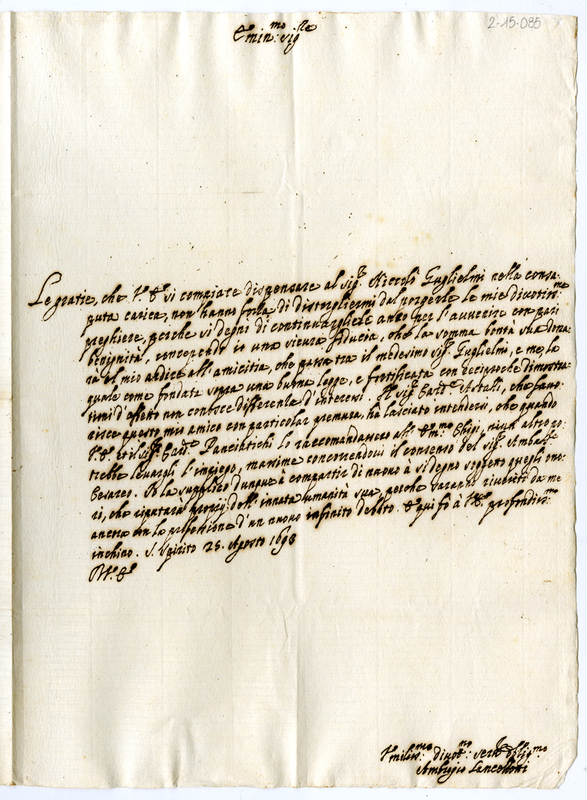 2-15-085
Emin:mo Sig:re
Le gratie, che V. E. si compiace dispensare al sig.r Niccolò Guglielmi nella consa-
puta carica, non hanno forza di distogliermi dal porgerle le mie divotiss.me
preghiere, perche si degni di continuargliele anco per l'avvenire con pari
benignità, concependo io una sicura fiducia, che la somma bontà sua dona-
rà il mio ardire all'amicitia, che passa tra il medesimo sig.r Guglielmi, e me, la
quale come fondata sopra una buona legge, e fortificata con reciproche dimostra-
tioni d'affetto non conosce differenza d'interessi. Il Sig.r Card.le Astalli, che favo-
risce questo mio amico con particolar premura, ha lasciato intendersi, che quando
V. E. et il sig.r Card.le Panciatichi lo raccomandassero all' Em.mo Chigi, niun altro po-
trebbe levargli l'impiego, massime concorrendovi il consenso del sig.r Amba.re
Cesareo. Io la supplico dunque à compartir di nuovo à sì degno sogetto quegli ono-
ri, che riputerà proprij dell'innata humanità sua, perche saranno ricevuti da me
ancora con la professione d'un nuovo infinito debito. E qui fò à V. E. profondiss.mo
inchino. S. Spirito 25. Agosto 1698
Di V. E.
Umiliss.mo divot.mo ser.re oblig.mo
Ambrogio Lancellotti